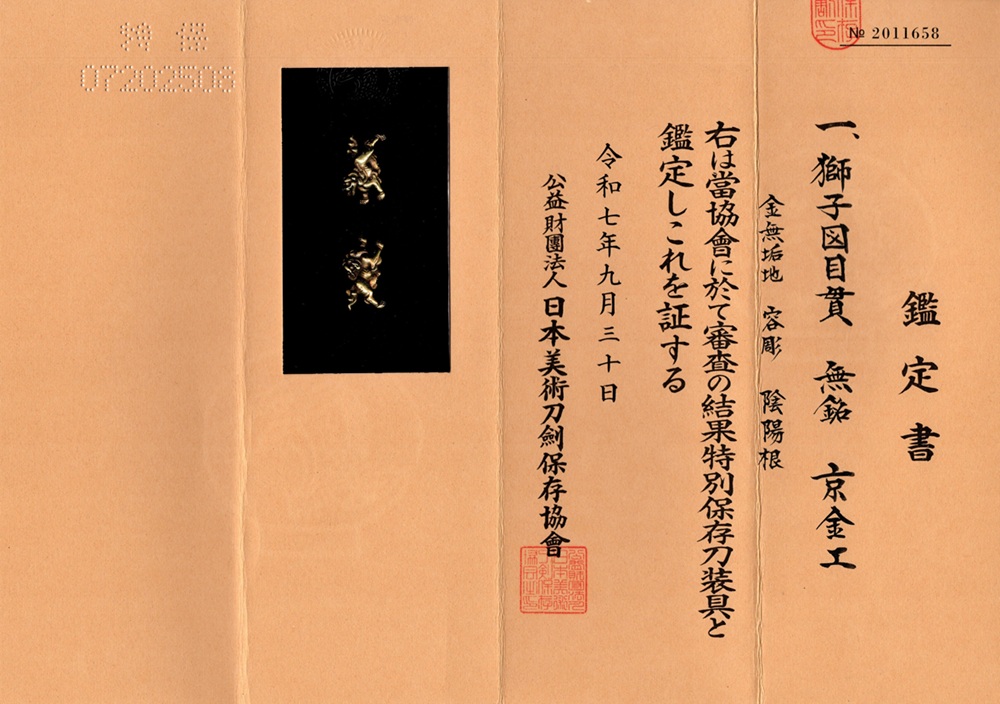 № 2011658
鑑定書
一、獅子図目貫 無銘 京金工
金無垢地 容彫 陰陽根
右は當協會に於て審査の結果特別保存刀装具と
鑑定しこれを証する
令和七年九月三十日
公益財團法人 日本美術刀劍保存協會
特保
07202508